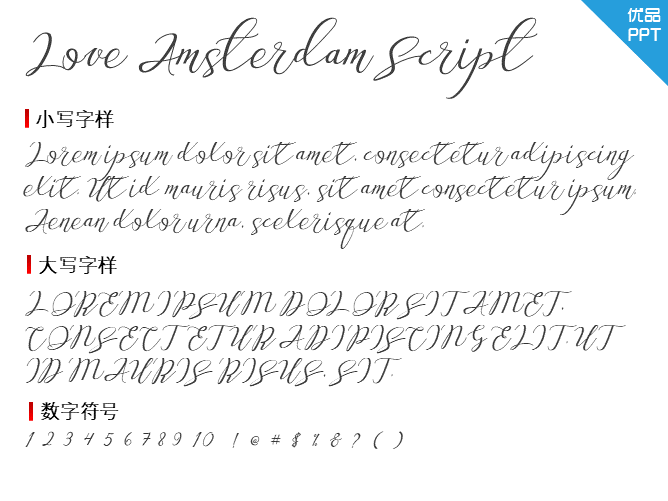 优品
PPT
Love Amsterdam Script
小写字样
Lorem ipsum dolor sit amet, consectetur adipiscing
elit. Ut id mauris risus, sit amet consectetur ipsum.
Aenean dolor urna, scelerisque at.
大写字样
LOREM IPSUM DOLOR SIT AMET,
CONSECTETUR ADIPISCING ELIT. UT
ID MAURIS RISUS, SIT.
数字符号
1 2 3 4 5 6 7 8 9 10 ! @ # $ % & ? ( )